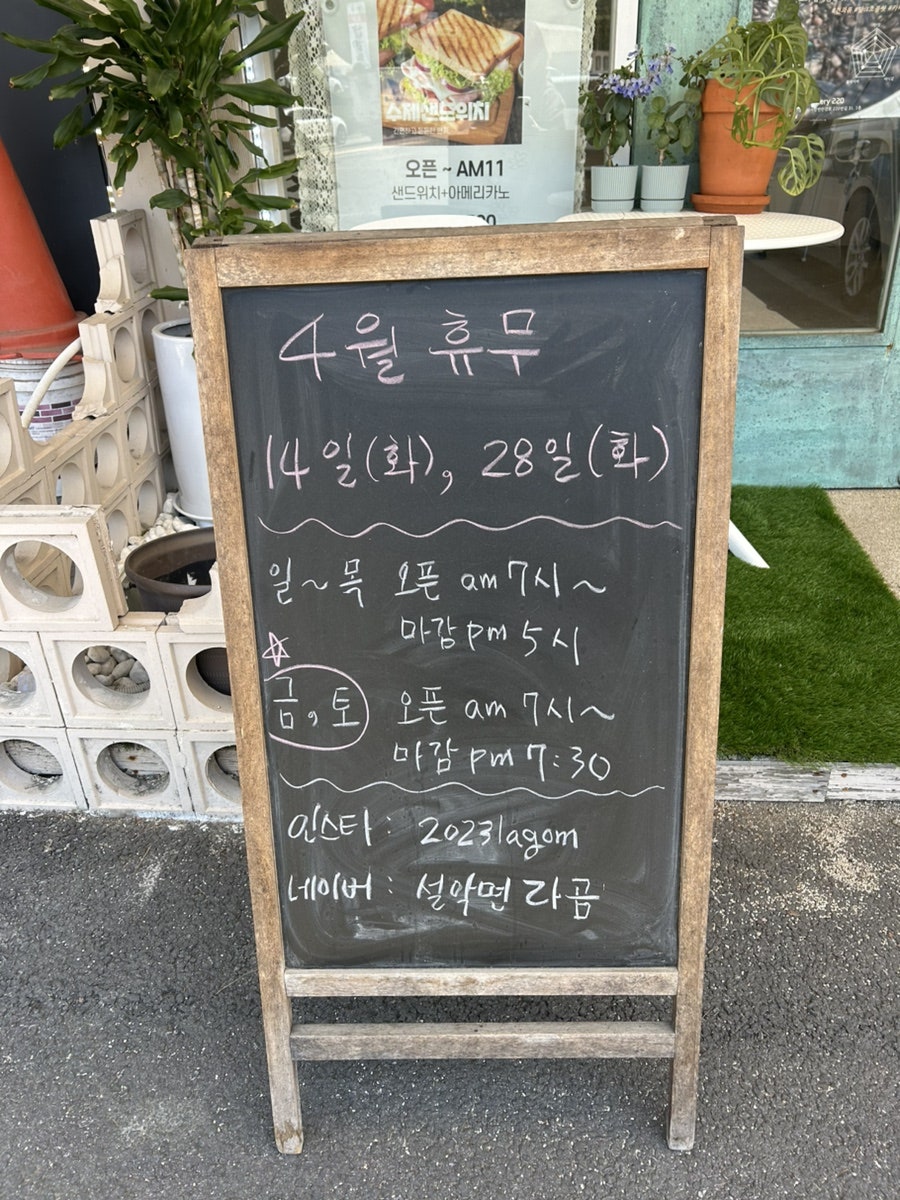 수제샌드위치
오픈 ~ AM11
샌드위치+아메리카노
4월 휴무
14일(화), 28일(화)
일~목 오픈 am 7시~
마감 pm 5시
금, 토 오픈 am 7시~
마감 pm 7:30
인스타 : 2023lagom
네이버 : 설악면 라곰